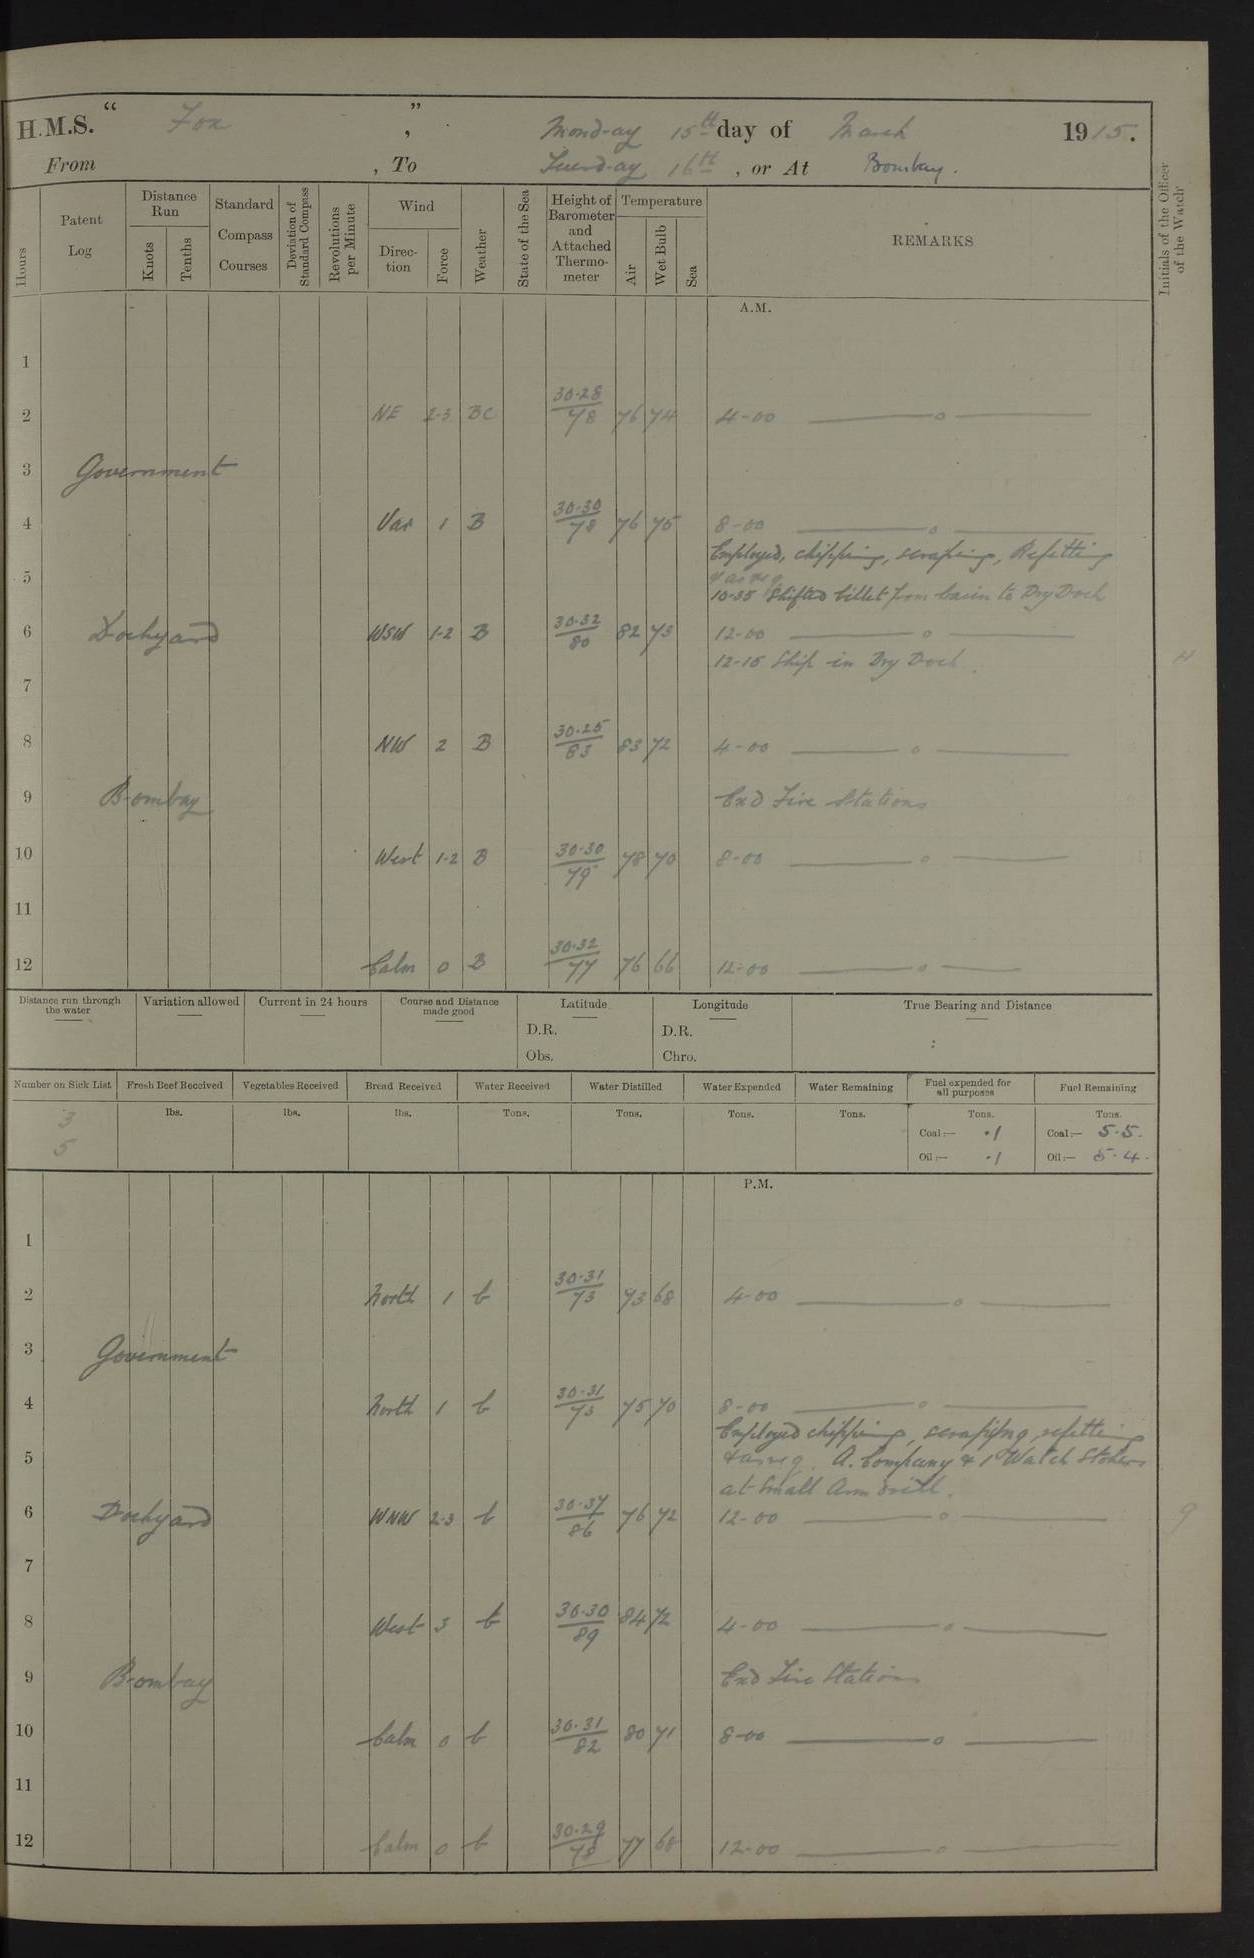 H.M.S. " Fox ", Monday 15th day of March 1915.
From , To Tuesday 16th , or At Bombay.
Hours
Patent Log
Distance Run
Knots
Tenths
Standard Compass Courses
Deviation of Standard Compass
Revolutions per Minute
Wind
Direction
Force
Weather
State of the Sea
Height of Barometer and Attached Thermometer
Temperature
Air
Wet Bulb
Sea
REMARKS
Initials of the Officer of the Watch
A.M.
1
2 NE 2-3 BC 30.28/78 76 74 4-00 —— o ——
3 Government
4 Var 1 B 30.30/78 76 75 8-00 —— o ——
Employed, chipping, scraping, Refitting
& as req
5 10-35 Shifted billet from basin to Dry Dock
6 Dockyard WSW 1-2 B 30.32/80 82 73 12-00 —— o ——
12-15 Ship in Dry Dock. H
7
8 NW 2 B 30.25/83 83 72 4-00 —— o ——
9 Bombay Exd Fire Stations
10 West 1-2 B 30.30/79 78 70 8-00 —— o ——
11
12 Calm 0 B 30.32/77 76 66 12-00 —— o ——
Distance run through the water
Variation allowed
Current in 24 hours
Course and Distance made good
Latitude
D.R.
Obs.
Longitude
D.R.
Chro.
True Bearing and Distance
:
Number on Sick List
Fresh Beef Received
Vegetables Received
Bread Received
Water Received
Water Distilled
Water Expended
Water Remaining
Fuel expended for all purposes
Fuel Remaining
3
5
lbs. lbs. lbs. Tons. Tons. Tons. Tons. Tons. Tons.
Coal:— .1 Coal:— 5.5.
Oil:— .1 Oil:— 5.4.
P.M.
1
2 North 1 b 30.31/73 73 68 4-00 —— o ——
3 Government
4 North 1 b 30.31/73 75 70 8-00 —— o ——
Employed chipping, scraping, refitting
5 & as req. A. Company & 1 Watch Stokers
at Small Arm drill.
6 Dockyard WNW 2-3 b 30.37/86 76 72 12-00 —— o ——
7
8 West 3 b 30.30/89 84 72 4-00 —— o ——
9 Bombay Exd Fire Stations
10 Calm 0 b 30.31/82 80 71 8-00 —— o ——
11
12 Calm 0 b 30.29/78 77 68 12-00 —— o ——